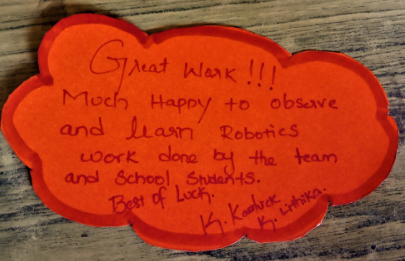 Great Work!!!
Much Happy to observe
and learn Robotics
work done by the team
and School Students.
Best of Luck.
K. Kartick
K. Lithika.